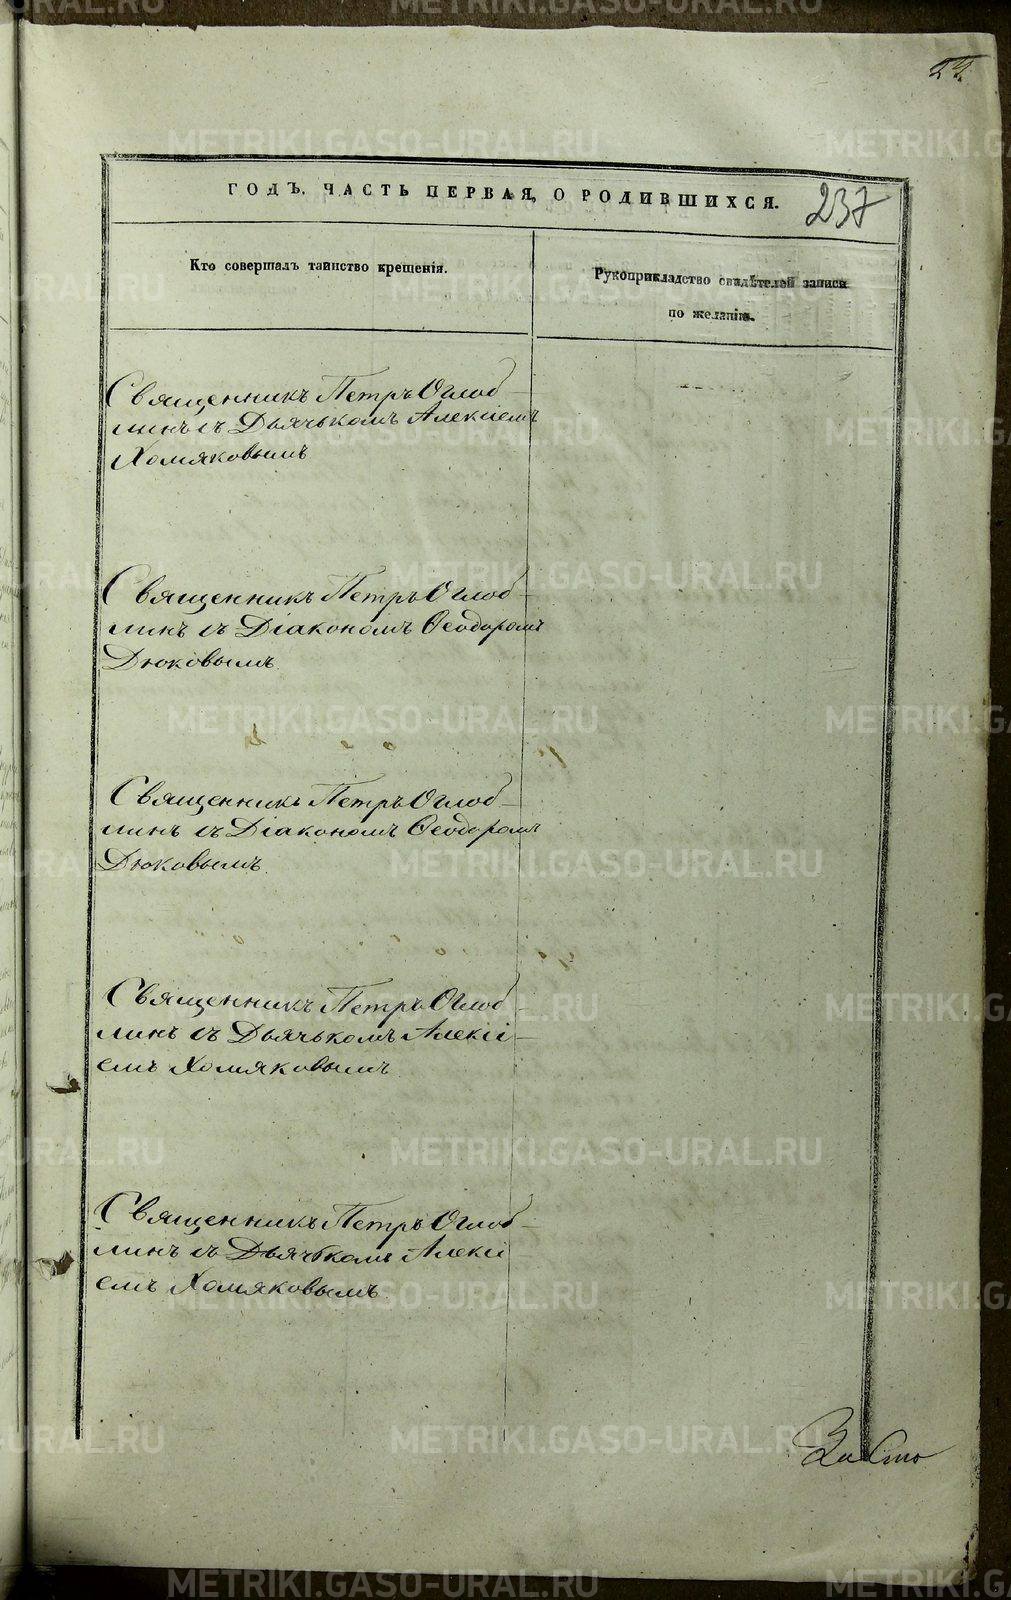 24.
ГОДЪ. ЧАСТЬ ПЕРВАЯ, О РОДИВШИХСЯ.
237
Кто совершалъ таинство крещенія.
Рукоприкладство свидѣтелей записи
по желанію.
Священникъ Петръ Оглоб-
линъ съ Дьячькомъ Алексіемъ
Хомяковымъ
Священникъ Петръ Оглоб-
линъ съ Діакономъ Ѳеодоромъ
Дюковымъ
Священникъ Петръ Оглоб-
линъ съ Діакономъ Ѳеодоромъ
Дюковымъ.
Священникъ Петръ Оглоб-
линъ съ Дьячькомъ Алексі-
емъ Хомяковымъ
Священникъ Петръ Оглоб-
линъ съ Дьячькомъ Алексі-
емъ Хомяковымъ
METRIKI.GASO-URAL.RU